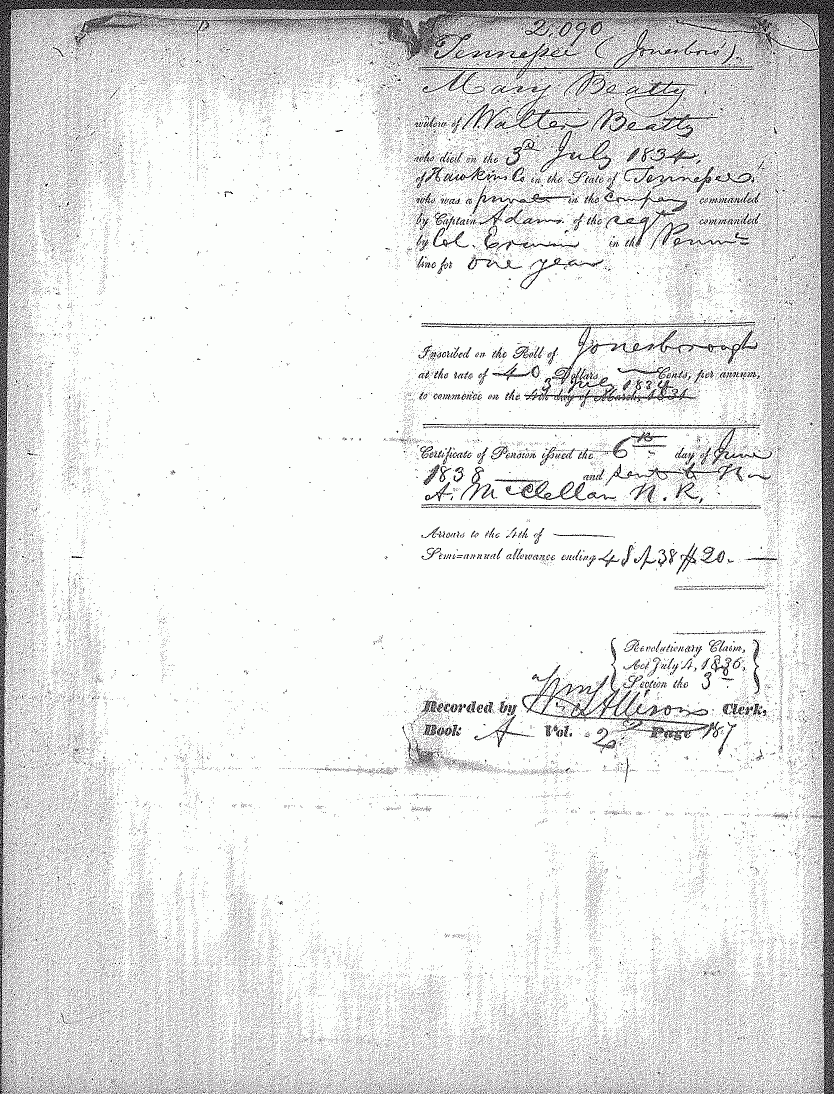 2,090
Tennessee (Jonesboro').
Mary Beatty
widow of Walter Beatty
who died on the 3d July 1834,
of Hawkins Co in the State of Tennessee.
who was a private in the Company commanded
by Captain Adams of the regt commanded
by Col. Erwin in the Penns
line for one year
Inscribed on the Roll of Jonesborough
at the rate of 40 Dollars Cents, per annum,
3 July 1834
to commence on the 4th day of March, 1831
Certificate of Pension issued the 6th day of June
1838 and sent to Hon
A. McClellan H. R.
Arrears to the 4th of
Semi-annual allowance ending 4 38 $20.
Revolutionary Claim,
Act July 4, 1836,
Section the 3
Recorded by Wm Allison Clerk,
Book A Vol. 2 Page 187